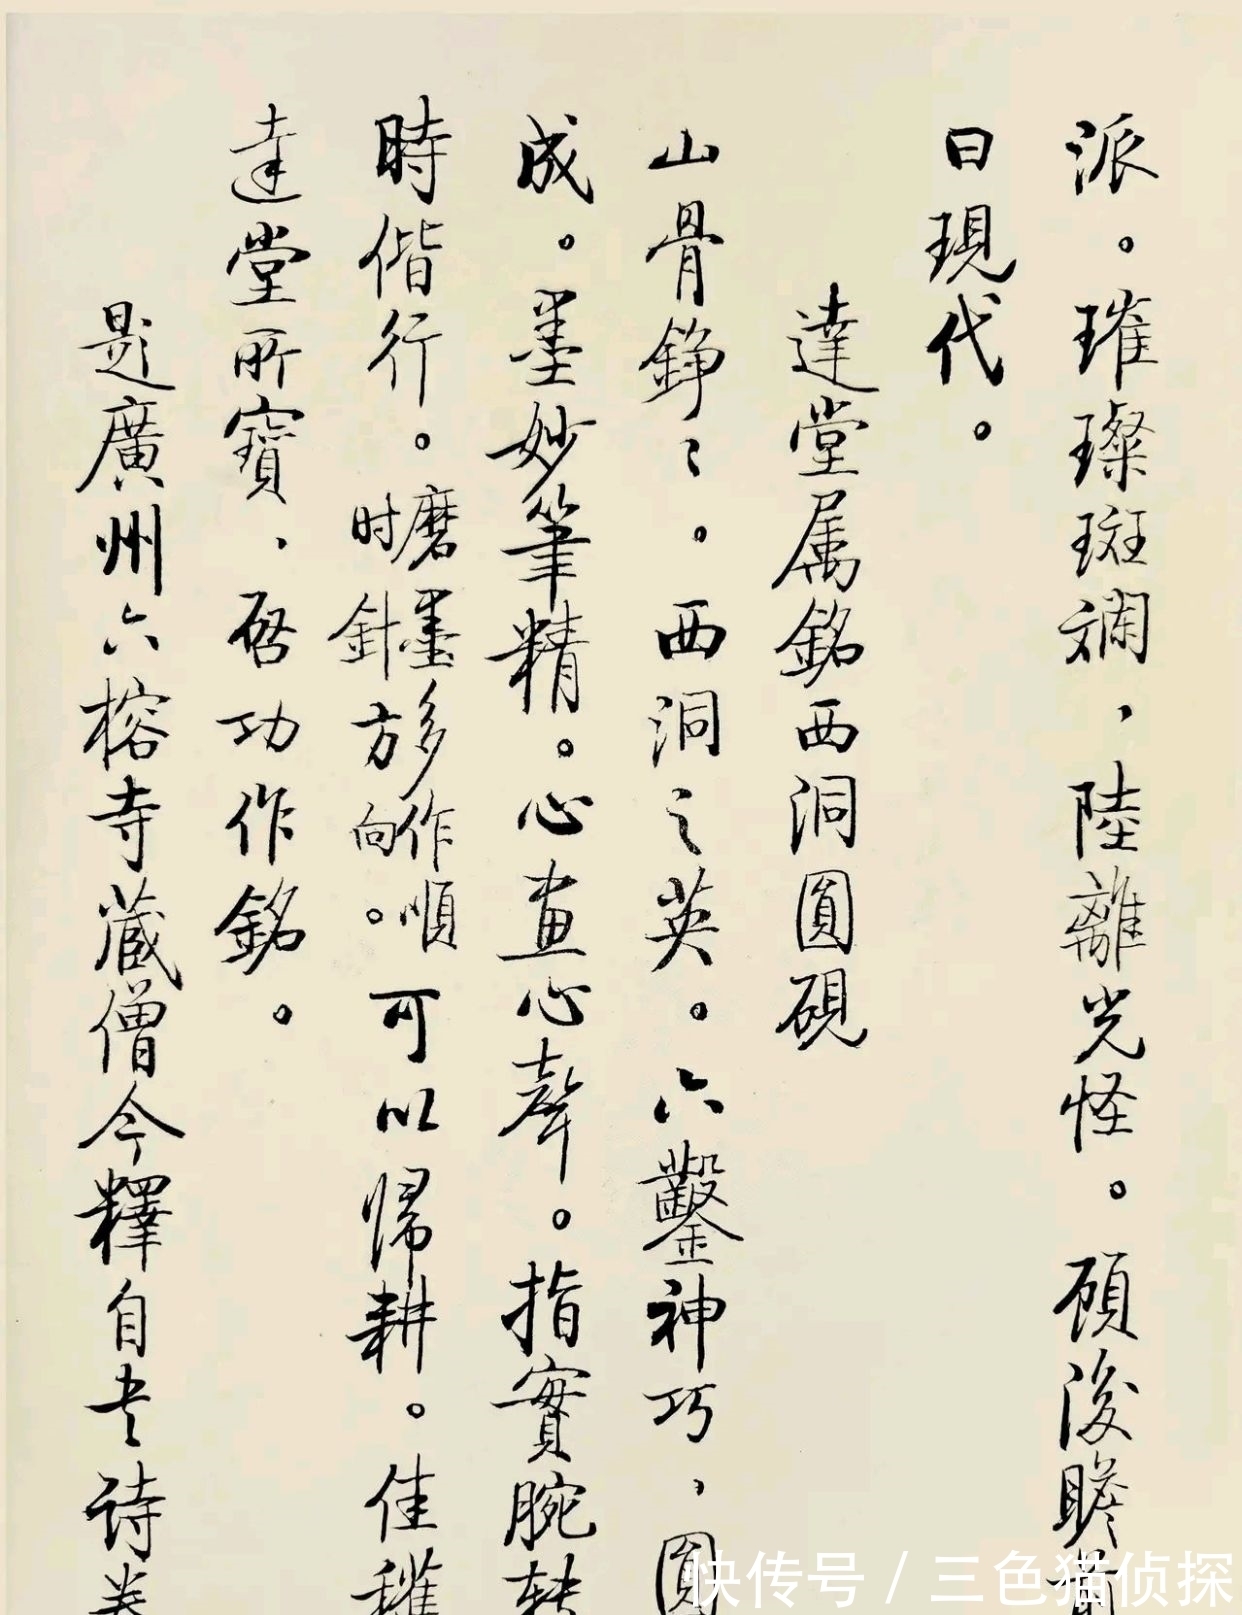 派。璀璨斑斕，陸離光怪。顧後瞻前
曰現代。
達堂属銘西洞圓硯
山骨錚〻。西洞之英。六鑿神巧，圓
成。墨妙筆精。心画心聲。指實腕转
時偕行。磨墨多作順时針方向。可以歸耕。佳穫
達堂所寶，啓功作銘。
題廣州六榕寺藏僧今釋自书诗卷
快传号 / 三色猫侦探